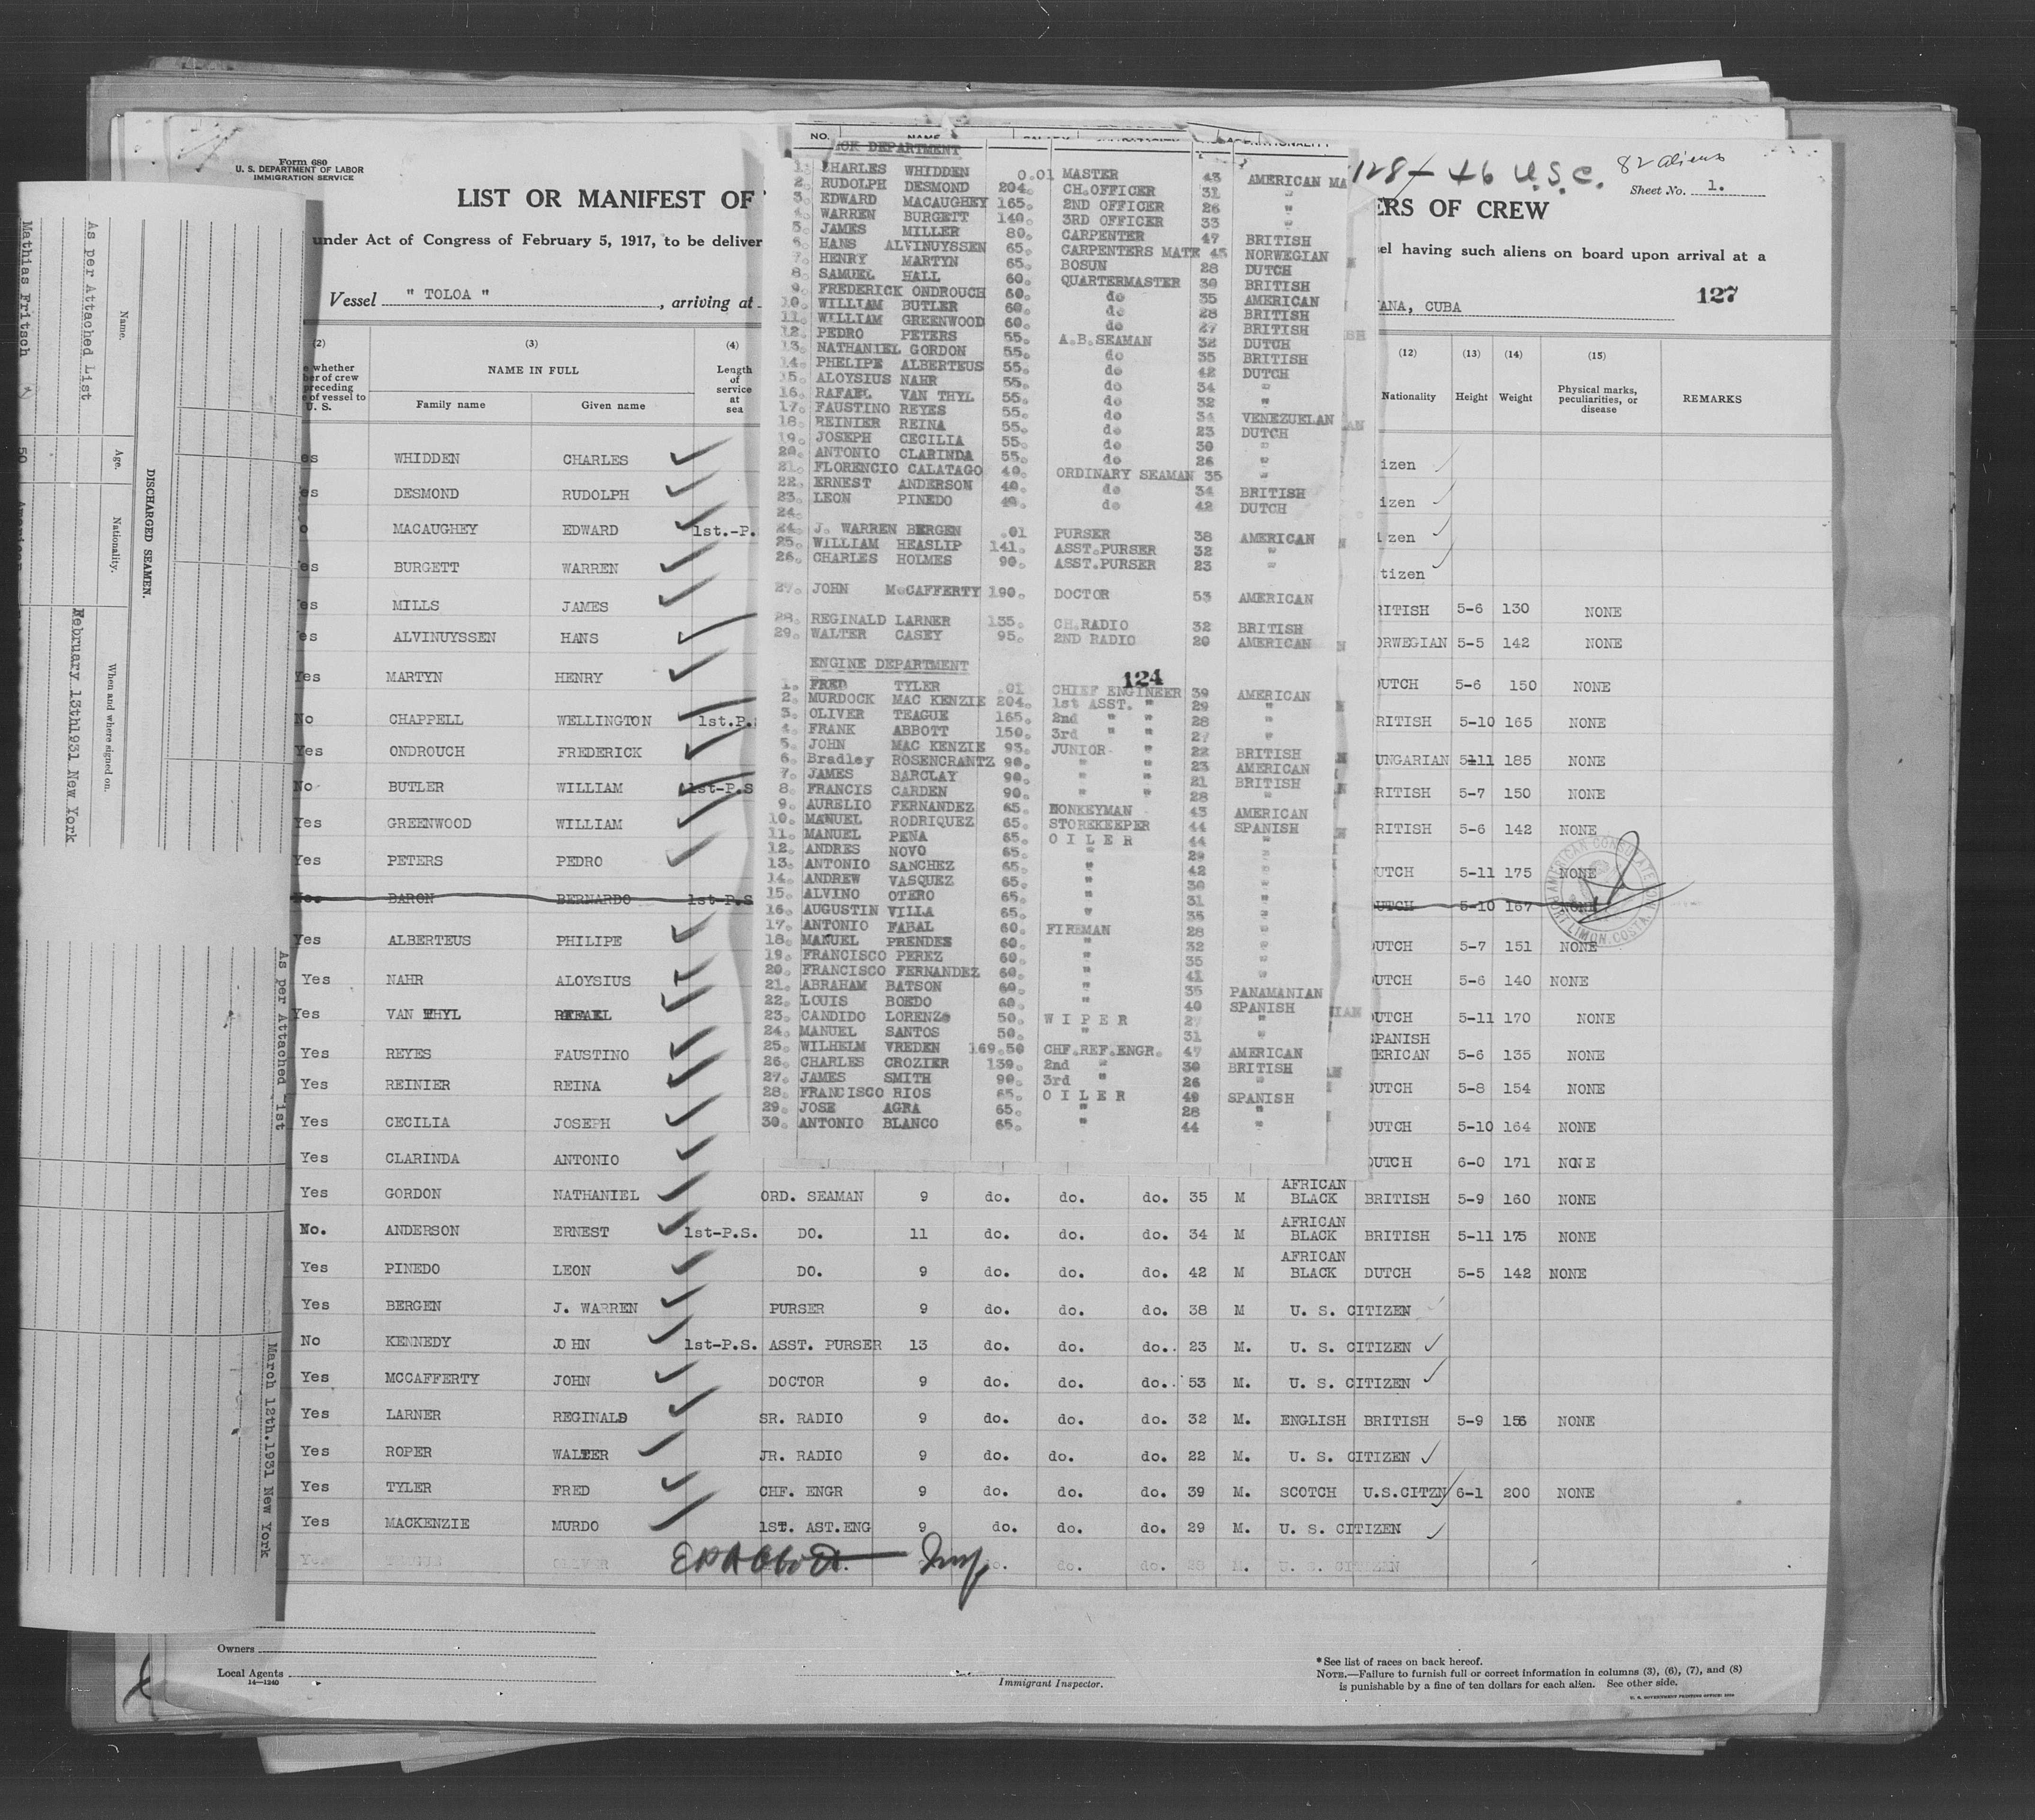 Form 680
U. S. DEPARTMENT OF LABOR
IMMIGRATION SERVICE
LIST OR MANIFEST OF
under Act of Congress of February 5, 1917, to be deliver
Vessel " TOLOA " , arriving at
128 + 46 U.S.C. 82 aliens
Sheet No. 1.
ERS OF CREW
el having such aliens on board upon arrival at a
ANA, CUBA 127
As per Attached List
Mathias Fritsch
Name.
Age.
Nationality.
When and where signed on.
DISCHARGED SEAMEN.
50
February 13th1931 New York
As per Attached List
March 12th.1931 New York
NO. NAME
CK DEPARTMENT
1. CHARLES WHIDDEN 0.01 MASTER 43 AMERICAN MA
2. RUDOLPH DESMOND 204. CH.OFFICER 31 "
3. EDWARD MACAUGHEY 165. 2ND OFFICER 26 "
4. WARREN BURGETT 140. 3RD OFFICER 33 "
5. JAMES MILLER 80. CARPENTER 47 BRITISH
6. HANS ALVINUYSSEN 65. CARPENTERS MATE 45 NORWEGIAN
7. HENRY MARTYN 65. BOSUN 28 DUTCH
8. SAMUEL HALL 60. QUARTERMASTER 30 BRITISH
9. FREDERICK ONDROUCH 60. do 35 AMERICAN
10. WILLIAM BUTLER 60. do 28 BRITISH
11. WILLIAM GREENWOOD 60. do 27 BRITISH
12. PEDRO PETERS 55. A.B.SEAMAN 32 DUTCH
13. NATHANIEL GORDON 55. do 35 BRITISH
14. PHELIPE ALBERTEUS 55. do 42 DUTCH
15. ALOYSIUS NAHR 55. do 34 "
16. RAFAEL VAN THYL 55. do 32 "
17. FAUSTINO REYES 55. do 34 VENEZUELAN
18. REINIER REINA 55. do 23 DUTCH
19. JOSEPH CECILIA 55. do 30 "
20. ANTONIO CLARINDA 55. do 26 "
21. FLORENCIO CALATAGO 40. ORDINARY SEAMAN 35 "
22. ERNEST ANDERSON 40. do 34 BRITISH
23. LEON PINEDO 40. do 42 DUTCH
24.
24. J. WARREN BERGEN .01 PURSER 38 AMERICAN
25. WILLIAM HEASLIP 141. ASST.PURSER 32 "
26. CHARLES HOLMES 90. ASST.PURSER 23 "
27. JOHN McCAFFERTY 190. DOCTOR 53 AMERICAN
28. REGINALD LARNER 135. CH.RADIO 32 BRITISH
29. WALTER CASEY 95. 2ND RADIO 20 AMERICAN
ENGINE DEPARTMENT 124
1. FRED TYLER .01 CHIEF ENGINEER 39 AMERICAN
2. MURDOCK MAC KENZIE 204. 1st ASST. " 29 "
3. OLIVER TEAGUE 165. 2nd " " 28 "
4. FRANK ABBOTT 150. 3rd " " 27 "
5. JOHN MAC KENZIE 93. JUNIOR " 22 BRITISH
6. Bradley ROSENCRANTZ 90. " " 23 AMERICAN
7. JAMES BARCLAY 90. " " 21 BRITISH
8. FRANCIS CARDEN 90. " " 28 "
9. AURELIO FERNANDEZ 65. DONKEYMAN 43 AMERICAN
10. MANUEL RODRIQUEZ 65. STOREKEEPER 44 SPANISH
11. MANUEL PENA 65. O I L E R 44 "
12. ANDRES NOVO 65. " 29 "
13. ANTONIO SANCHEZ 65. " 42 "
14. ANDREW VASQUEZ 65. " 30 "
15. ALVINO OTERO 65. " 31 "
16. AUGUSTIN VILLA 65. " 35 "
17. ANTONIO FABAL 60. FIREMAN 28 "
18. MANUEL PRENDES 60. " 32 "
19. FRANCISCO PEREZ 60. " 35 "
20. FRANCISCO FERNANDEZ 60. " 41 "
21. ABRAHAM BATSON 60. " 35 PANAMANIAN
22. LOUIS BOEDO 60. " 40 SPANISH
23. CANDIDO LORENZO 50. W I P E R 27 "
24. MANUEL SANTOS 50. " 31 "
25. WILHELM VREDEN 169.50 CHF.REF.ENGR. 47 AMERICAN
26. CHARLES CROZIER 139. 2nd " 30 BRITISH
27. JAMES SMITH 90. 3rd " 26 "
28. FRANCISCO RIOS 65. O I L E R 49 SPANISH
29. JOSE AGRA 65. " 28 "
30. ANTONIO BLANCO 65. " 44 "
(2) (3) (4) (12) (13) (14) (15)
whether
er of crew
preceding
of vessel to
U. S.
NAME IN FULL
Family name Given name
Length of service at sea
Nationality Height Weight Physical marks, peculiarities, or disease REMARKS
es WHIDDEN CHARLES izen
es DESMOND RUDOLPH izen
o MACAUGHEY EDWARD 1st.-P. izen
es BURGETT WARREN tizen
es MILLS JAMES RITISH 5-6 130 NONE
es ALVINUYSSEN HANS ORWEGIAN 5-5 142 NONE
Yes MARTYN HENRY DUTCH 5-6 150 NONE
No CHAPPELL WELLINGTON 1st.P. RITISH 5-10 165 NONE
Yes ONDROUCH FREDERICK UNGARIAN 5-11 185 NONE
No BUTLER WILLIAM 1st-P.S RITISH 5-7 150 NONE
Yes GREENWOOD WILLIAM RITISH 5-6 142 NONE
Yes PETERS PEDRO UTCH 5-11 175 NONE
No. BARON BERNARDO 1st-P.S UTCH 5-10 167 NONE
AMERICAN CONSULATE
PORT LIMON, COSTA
Yes ALBERTEUS PHILIPE DUTCH 5-7 151 NONE
Yes NAHR ALOYSIUS DUTCH 5-6 140 NONE
Yes VAN THYL RAFAEL DUTCH 5-11 170 NONE
Yes REYES FAUSTINO SPANISH ERICAN 5-6 135 NONE
Yes REINIER REINA DUTCH 5-8 154 NONE
Yes CECILIA JOSEPH DUTCH 5-10 164 NONE
Yes CLARINDA ANTONIO DUTCH 6-0 171 NONE
Yes GORDON NATHANIEL ORD. SEAMAN 9 do. do. do. 35 M AFRICAN BLACK BRITISH 5-9 160 NONE
No. ANDERSON ERNEST 1st-P.S. DO. 11 do. do. do. 34 M AFRICAN BLACK BRITISH 5-11 175 NONE
Yes PINEDO LEON DO. 9 do. do. do. 42 M AFRICAN BLACK DUTCH 5-5 142 NONE
Yes BERGEN J. WARREN PURSER 9 do. do. do. 38 M U. S. CITIZEN
No KENNEDY JOHN 1st-P.S. ASST. PURSER 13 do. do. do. 23 M. U. S. CITIZEN
Yes MCCAFFERTY JOHN DOCTOR 9 do. do. do. 53 M. U. S. CITIZEN
Yes LARNER REGINALD SR. RADIO 9 do. do. do. 32 M. ENGLISH BRITISH 5-9 156 NONE
Yes ROPER WALTER JR. RADIO 9 do. do. do. 22 M. U. S. CITIZEN
Yes TYLER FRED CHF. ENGR 9 do. do. do. 39 M. SCOTCH U.S.CITZN 6-1 200 NONE
Yes MACKENZIE MURDO 1ST. AST.ENG 9 do. do. do. 29 M. U. S. CITIZEN
Yes TEAGUE OLIVER do. do. do. 28 M. U. S. CITIZEN
Owners
Local Agents
14—1240
Immigrant Inspector.
* See list of races on back hereof.
NOTE.—Failure to furnish full or correct information in columns (3), (6), (7), and (8)
is punishable by a fine of ten dollars for each alien. See other side.
U. S. GOVERNMENT PRINTING OFFICE